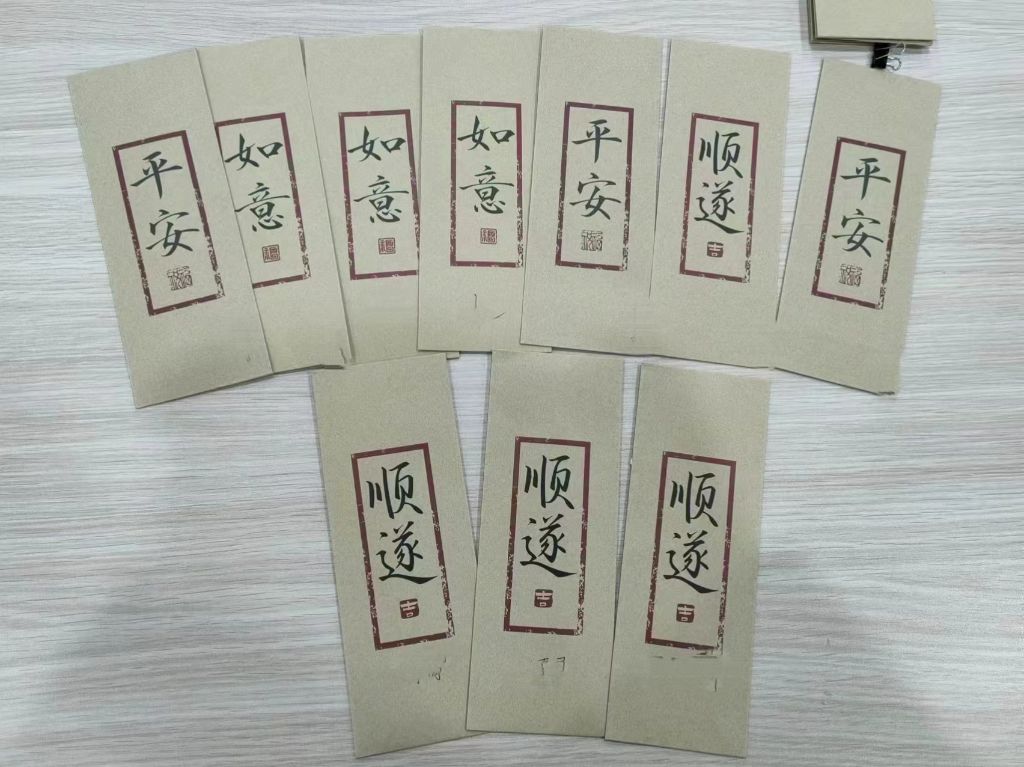 平安
如意
如意
如意
平安
顺遂
吉
平安
顺遂
吉
顺遂
吉
顺遂
吉